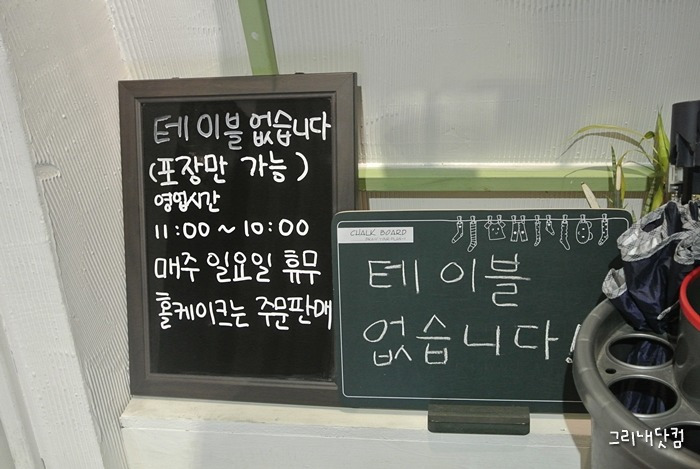 테이블 없습니다
(포장만 가능)
영업시간
11:00 ~ 10:00
매주 일요일 휴무
홀케이크는 주문판매
CHALK BOARD
테이블
없습니다!
그리내닷컴